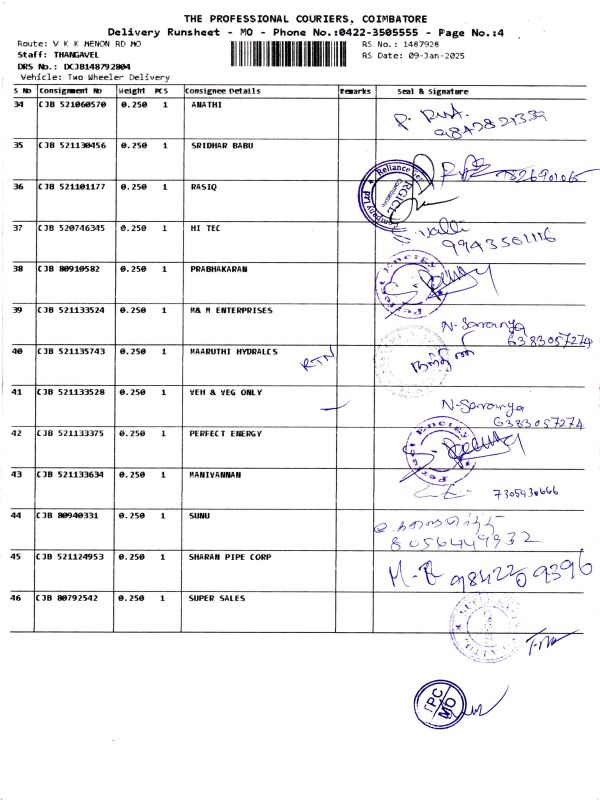 THE PROFESSIONAL COURIERS, COIMBATORE
Delivery Runsheet - MO - Phone No.:0422-3505555 - Page No.:4
Route: V K K MENON RD MO
RS No.: 1487928
Staff: THANGAVEL
RS Date: 09-Jan-2025
DRS No.: DCJB148792804
Vehicle: Two Wheeler Delivery
S No Consignment No Weight PCS Consignee Details Remarks Seal & Signature
34 CJB 521060570 0.250 1 ANATHI
9842821339
35 CJB 521130456 0.250 1 SRIDHAR BABU
36 CJB 521101177 0.250 1 RASIQ
37 CJB 520746345 0.250 1 HI TEC Valli
9943501116
38 CJB 80910582 0.250 1 PRABHAKARAN
39 CJB 521133524 0.250 1 M& M ENTERPRISES N-Saranya
6383057274
40 CJB 521135743 0.250 1 MAARUTHI HYDRALCS RTN
41 CJB 521133528 0.250 1 VEH & VEG ONLY N-Saranya
6383057274
42 CJB 521133375 0.250 1 PERFECT ENERGY Perfect Energy
43 CJB 521133634 0.250 1 MANIVANNAN
7305930666
44 CJB 80940331 0.250 1 SUNU
8056449932
45 CJB 521124953 0.250 1 SHARAN PIPE CORP
9842209396
46 CJB 80792542 0.250 1 SUPER SALES
TPC
MO